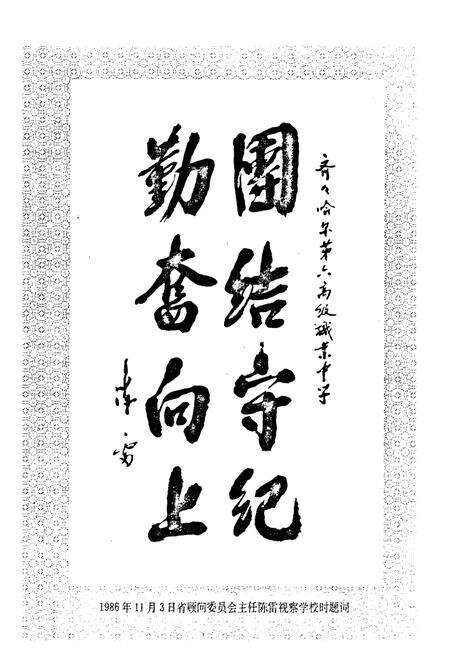 齐々哈尔第六高级职业中学
團结守纪
勤奋向上
陈雷
1986年11月3日省顾问委员会主任陈雷视察学校时题词